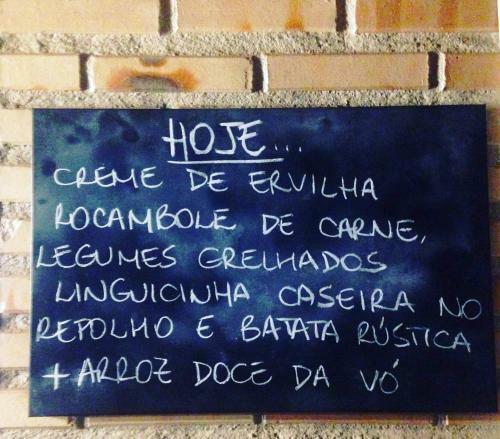 HOJE...
CREME DE ERVILHA
ROCAMBOLE DE CARNE,
LEGUMES GRELHADOS
LINGUICINHA CASEIRA NO
REPOLHO E BATATA RÚSTICA
+ ARROZ DOCE DA VÓ